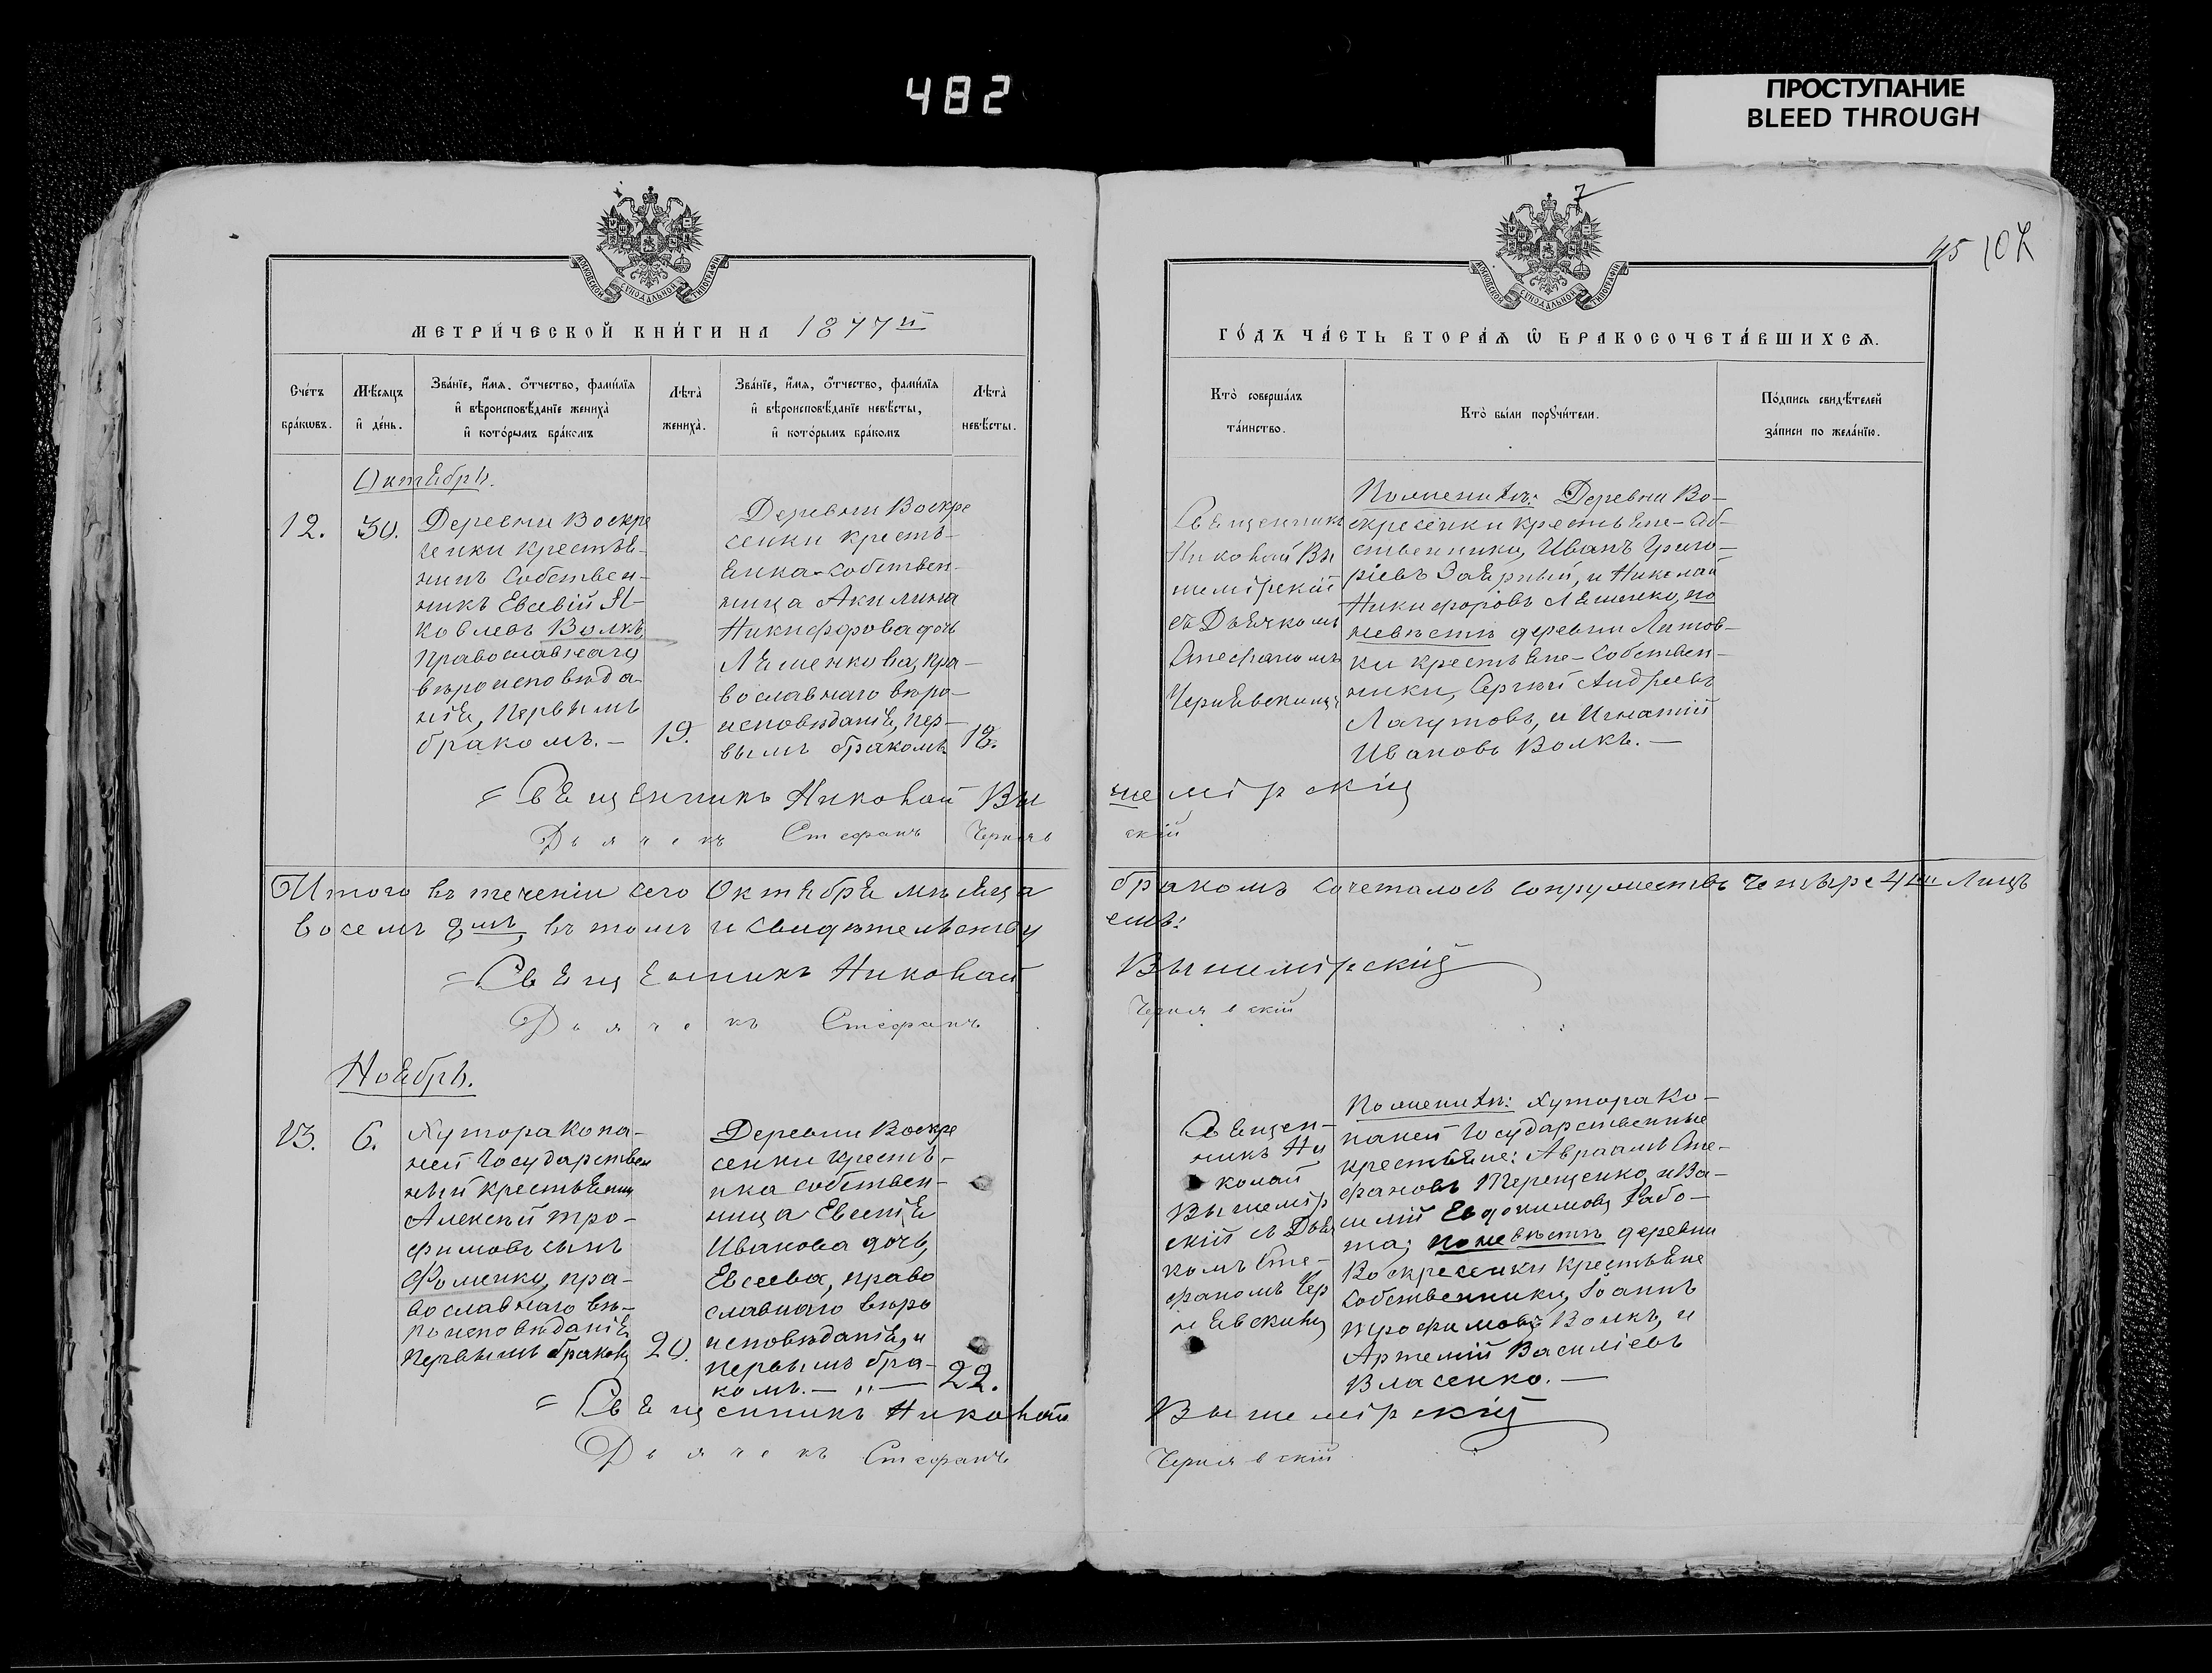 482
ПРОСТУПАНИЕ
BLEED THROUGH
7
45 102
МОСКОВСКОЙ СѴНОДАЛЬНОЙ ТИПОГРАФІИ
МОСКОВСКОЙ СѴНОДАЛЬНОЙ ТИПОГРАФІИ
МЕТРИ́ЧЕСКОЙ КНИ́ГИ НА 1877й
ГО́ДЪ ЧА́СТЬ ВТОРА́Ѧ Ѿ БРАКОСОЧЕТА́ВШИХСѦ.
Сче́тъ
бра́кωвъ.
Мѣ́сяцъ
и҆ де́нь.
Зва́нїе, и҆́мя, ѻ҆́тчество, фами́лїя
и҆ вѣроисповѣ́данїе жениха̀
и҆ кото́рымъ бра́комъ
Лѣта̀
жениха̀.
Зва́нїе, и҆́мя, ѻ҆́тчество, фами́лїя
и҆ вѣроисповѣ́данїе невѣ́сты,
и҆ кото́рымъ бра́комъ
Лѣта̀
невѣ́сты.
Кто̀ соверша́лъ
та́инство.
Кто̀ бы́ли порꙋчи́тели.
По́дпись свидѣ́телей
за́писи по жела́нїю.
Октябрь.
12.
30.
Деревни Воскре
сенки крестья-
нинъ Собствен-
никъ Евсевій Я-
ковлевъ Волкъ,
Православнаго
вѣроисповѣда-
нія, Первымъ
бракомъ. –
19.
Деревни Воскре
сенки кресть-
янка-собствен-
ница Акилина
Никифорова дочь
Ляшенкова, пра-
вославнаго вѣро-
исповѣданія, пер-
вымъ бракомъ
18.
Священникъ
Николай Вы
шемірскій
съ Дьячкомъ
Стефаномъ
Чернявскимъ
По жениху: Деревни Во-
скресенки крестьяне-соб-
ственники, Иванъ Григо-
ріевъ Заярный, и Николай
Никифоровъ Ляшенко, по
невѣстѣ деревни Литов-
ки крестьяне-собствен-
ники, Сергій Андреевъ
Лагутовъ, и Игнатій
Ивановъ Волкъ. –
= Священникъ Николай Вы шемірскій
Дьячекъ Стефанъ Чернявскій
Итого въ теченіи сего Октября мѣсяца бракомъ сочеталось супружествъ Четыре 4ре Лицъ
восемь 8мь, въ томъ и свидѣтельству емъ:
= Священникъ Николай Вышемірскій
Дьячекъ Стефанъ Чернявскій
Ноябрь.
13.
6.
Хутора Копа-
ней Государствен
ный крестьянин
Алексѣй Тро-
фимовъ сынъ
Фоменко, пра-
вославнаго вѣ-
роисповѣданія
Первымъ бракомъ
20.
Деревни Воскре
сенки кресть-
нка собствен-
ница Евсепія
Иванова дочь,
Евсеева, право
славнаго вѣро
исповѣданія, и
первымъ бра-
комъ. – " –
22.
Священ-
никъ Ни
колай
Вышемір
скій съ Дьяч
комъ Сте-
фаномъ Чер
нявскимъ
По жениху: Хутора Ко-
паней Государственные
крестьяне: Авраамъ Сте-
фановъ Терещенко, и Ва-
силій Евдокимовъ Рабо-
та; по невѣстѣ деревни
Воскресенки крестьяне
Собственники, Іоаннъ
Трофимовъ Волкъ, и
Артемій Василіевъ
Власенко. –
= Священникъ Николай Вышемірскій
Дьячекъ Стефанъ Чернявскій